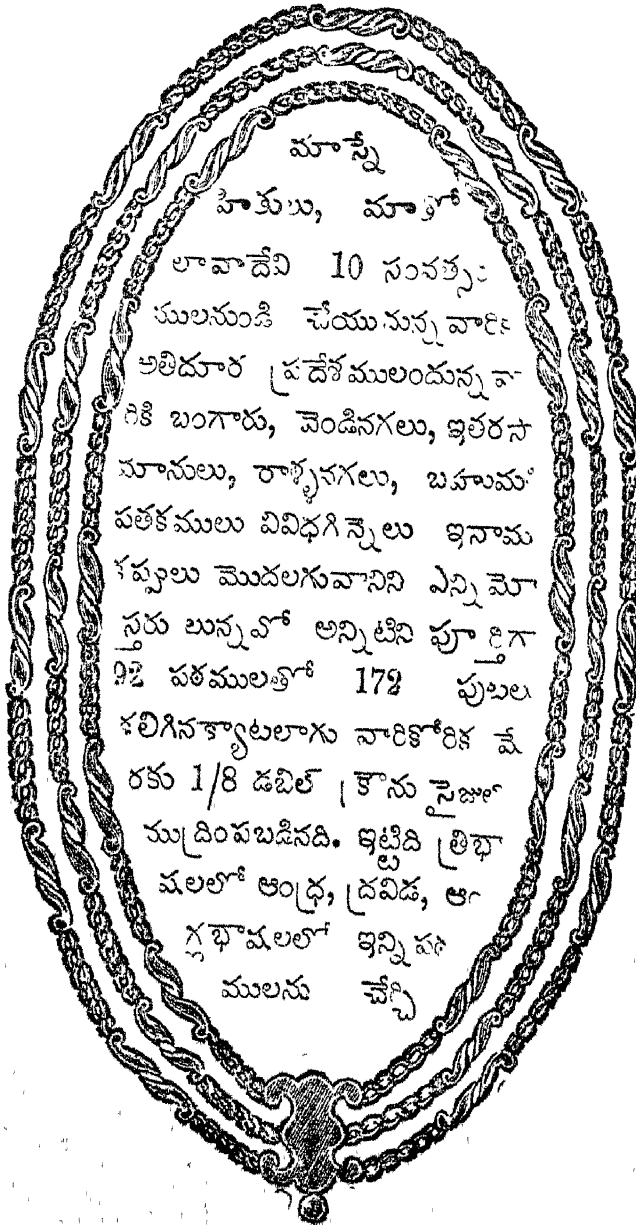 మాస్నే
హితులు, మాతో
లావాదేవి 10 సంవత్స
ములనుండి చేయుచున్న వారికి
అతిదూర ప్రదేశములందున్న వా
రికి బంగారు, వెండినగలు, ఇతరసా
మానులు, రాళ్ళనగలు, బహుమ
పతకములు వివిధగిన్నెలు ఇనాము
కప్పులు మొదలగువానిని ఎన్ని మో
స్తరు లున్నవో అన్నిటిని పూర్తిగా
92 పఠములతో 172 పుటలు
కలిగినక్యాటలాగు వారికోరిక మే
రకు 1/8 డబిల్ క్రౌను సైజులో
ముద్రింపబడినది. ఇట్టిది త్రిభా
షలలో ఆంధ్ర, ద్రవిడ, ఆం
గ్లభాషలలో ఇన్ని పఠ
ములను చేర్చి